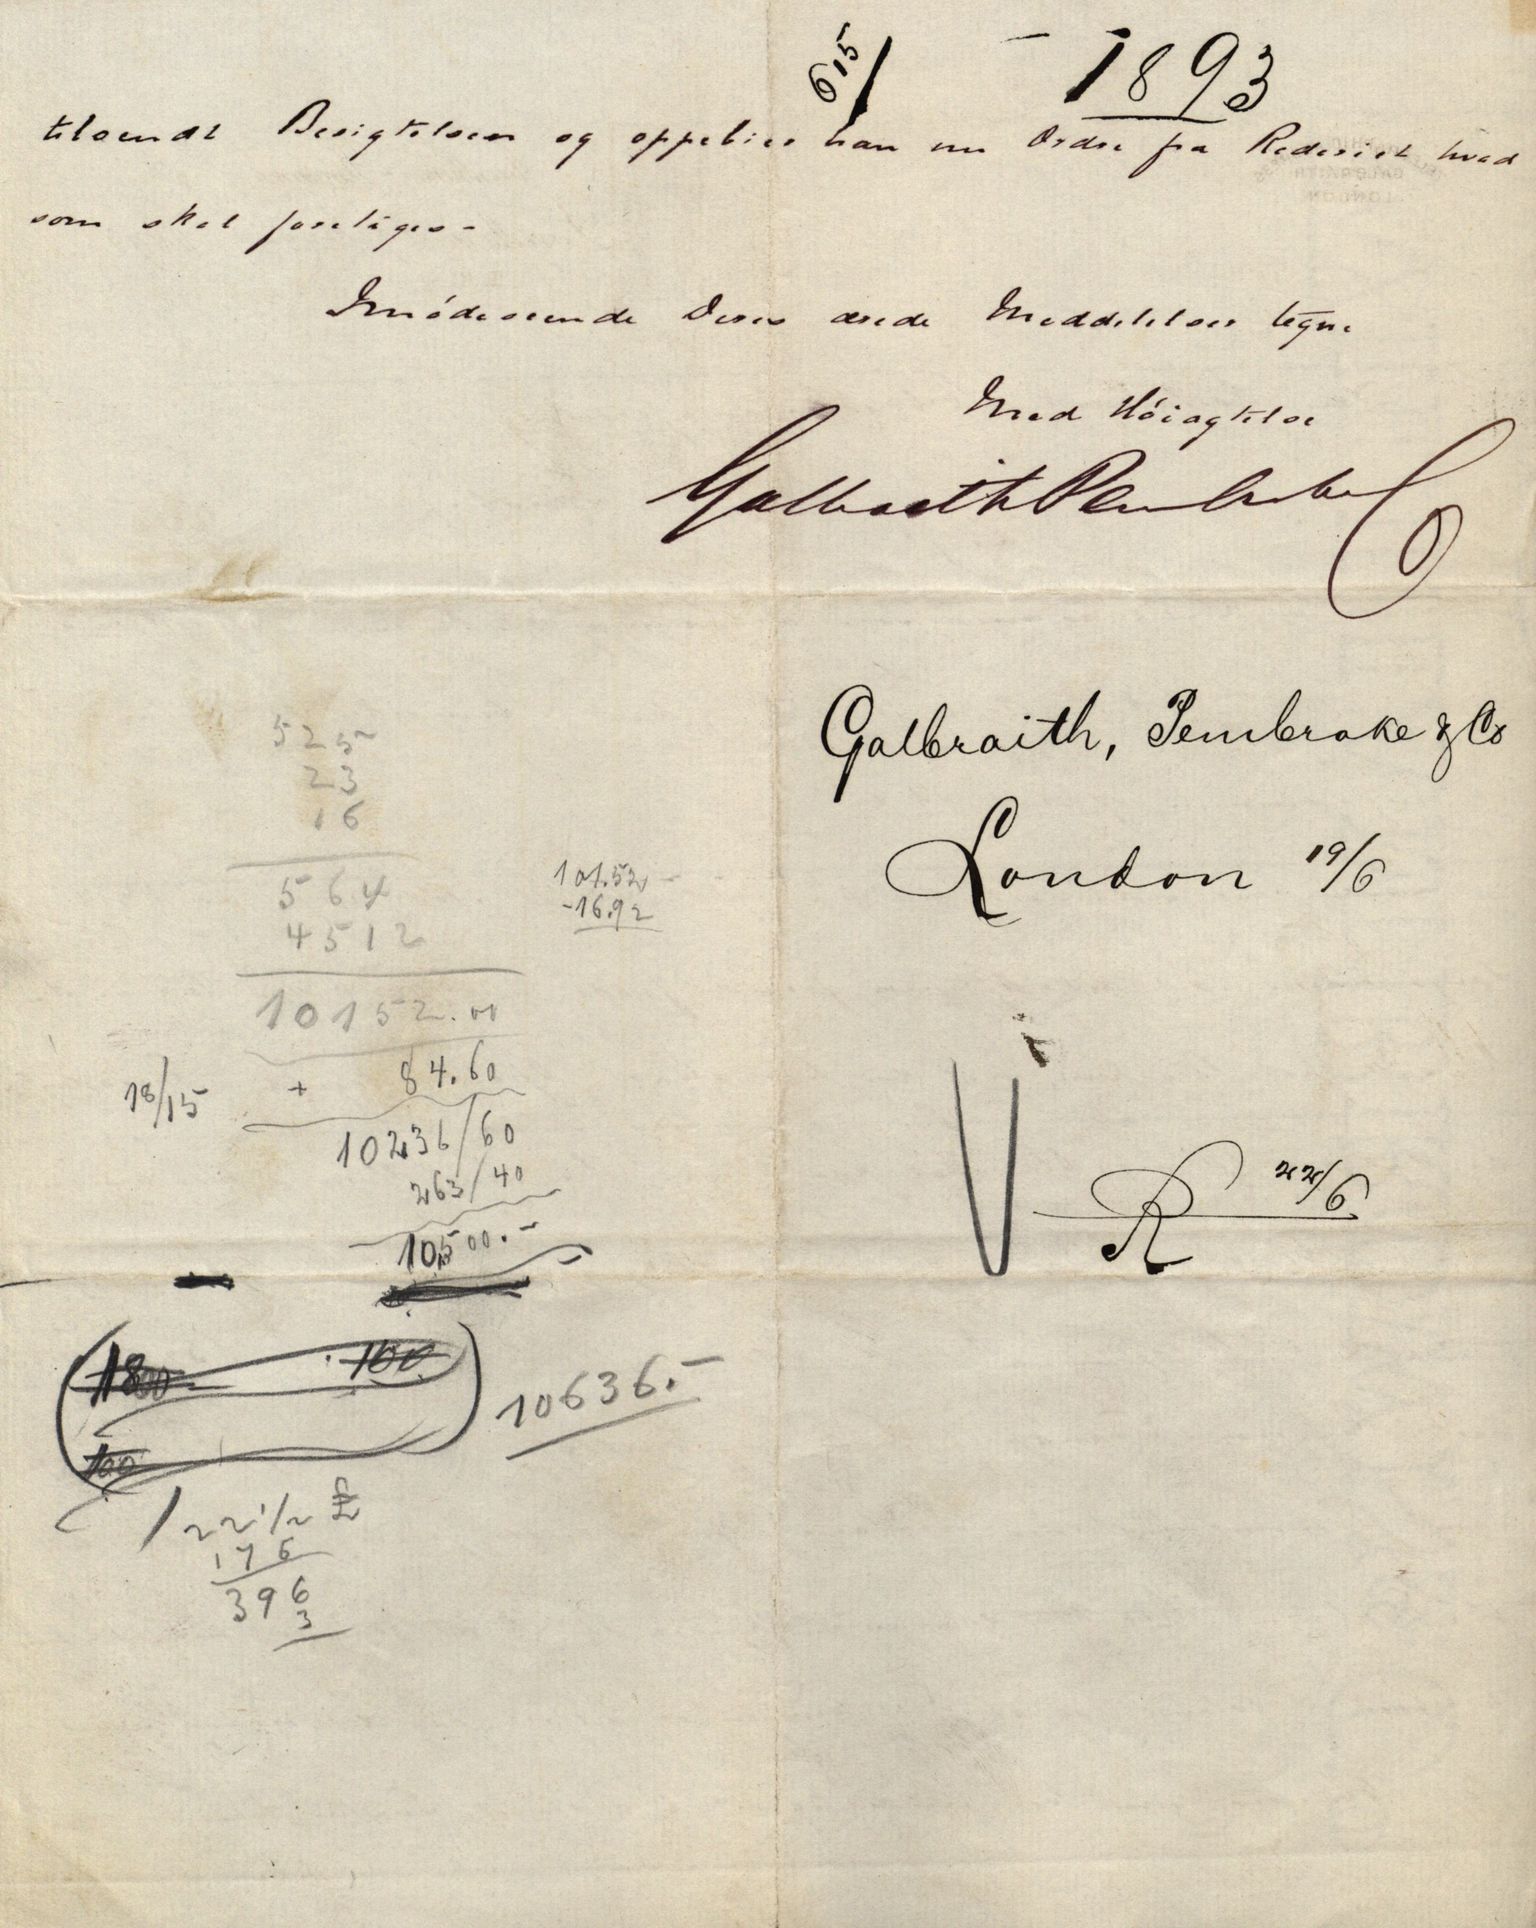 615/ - 1893
tilsendt Besigtelsen og oppebier han nu Ordre fra Rederiet hvad
som skal foretages -
Imødeseende Deres ærede Meddelelser tegne
Med Høiagtelse
Galbraith Pembroke Co
Galbraith, Pembroke & Co
London 19/6
525
23
16
564
4512
10152.00
101.52
-16.92
18/15 + 84.60
10236/60
263/40
10,500.-
R 22/6
1800 100
100
10636.-
/ 22 1/2 £
176
396
3